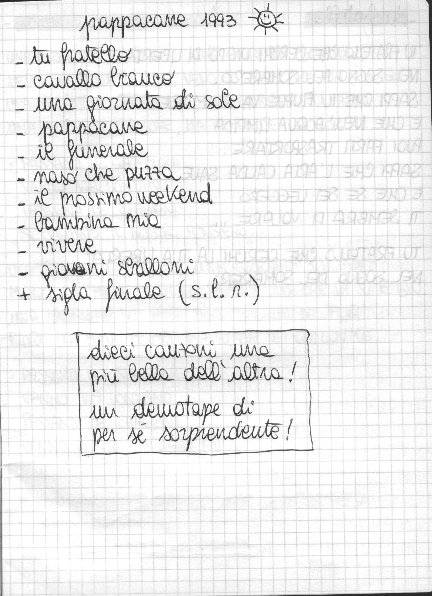 pappacane 1993
- tu fratello
- cavallo bianco
- una giornata di sole
- pappacane
- il funerale
- naso che puzza
- il prossimo weekend
- bambina mia
- vivere
- giovani sballoni
+ sigla finale (s.l.n.)
dieci canzoni una
più bella dell'altra!
un demotape di
per sé sorprendente!